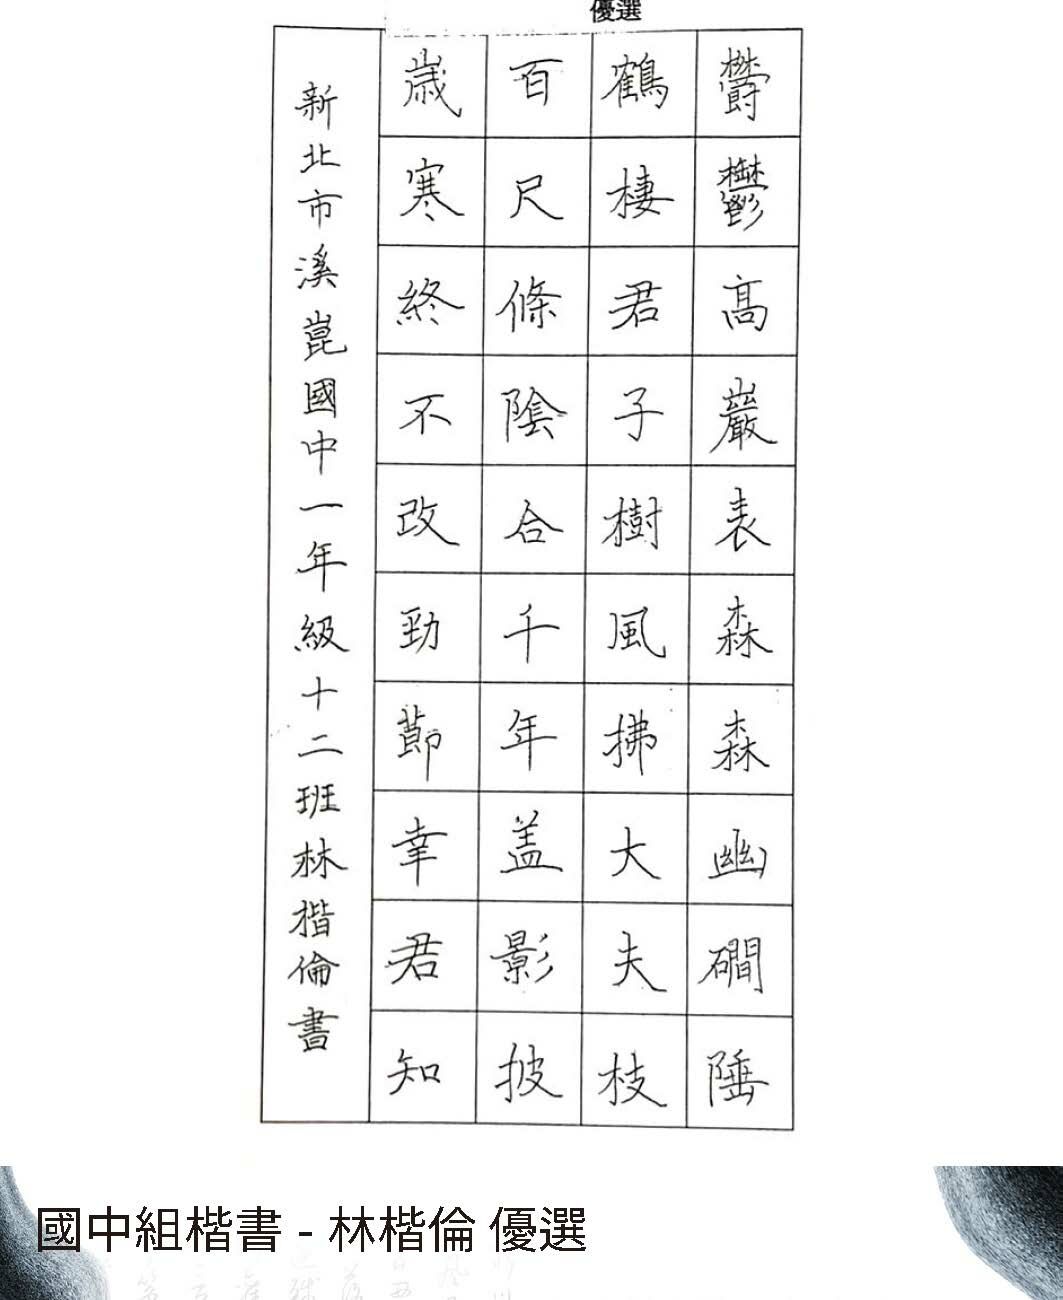 優選
欝鬱髙巖表森森幽磵陲
鶴棲君子樹風拂大夫枝
百尺條陰合千年盖影披
歳寒終不改勁節幸君知
新北市溪崑國中一年級十二班林楷倫書
國中組楷書 - 林楷倫 優選